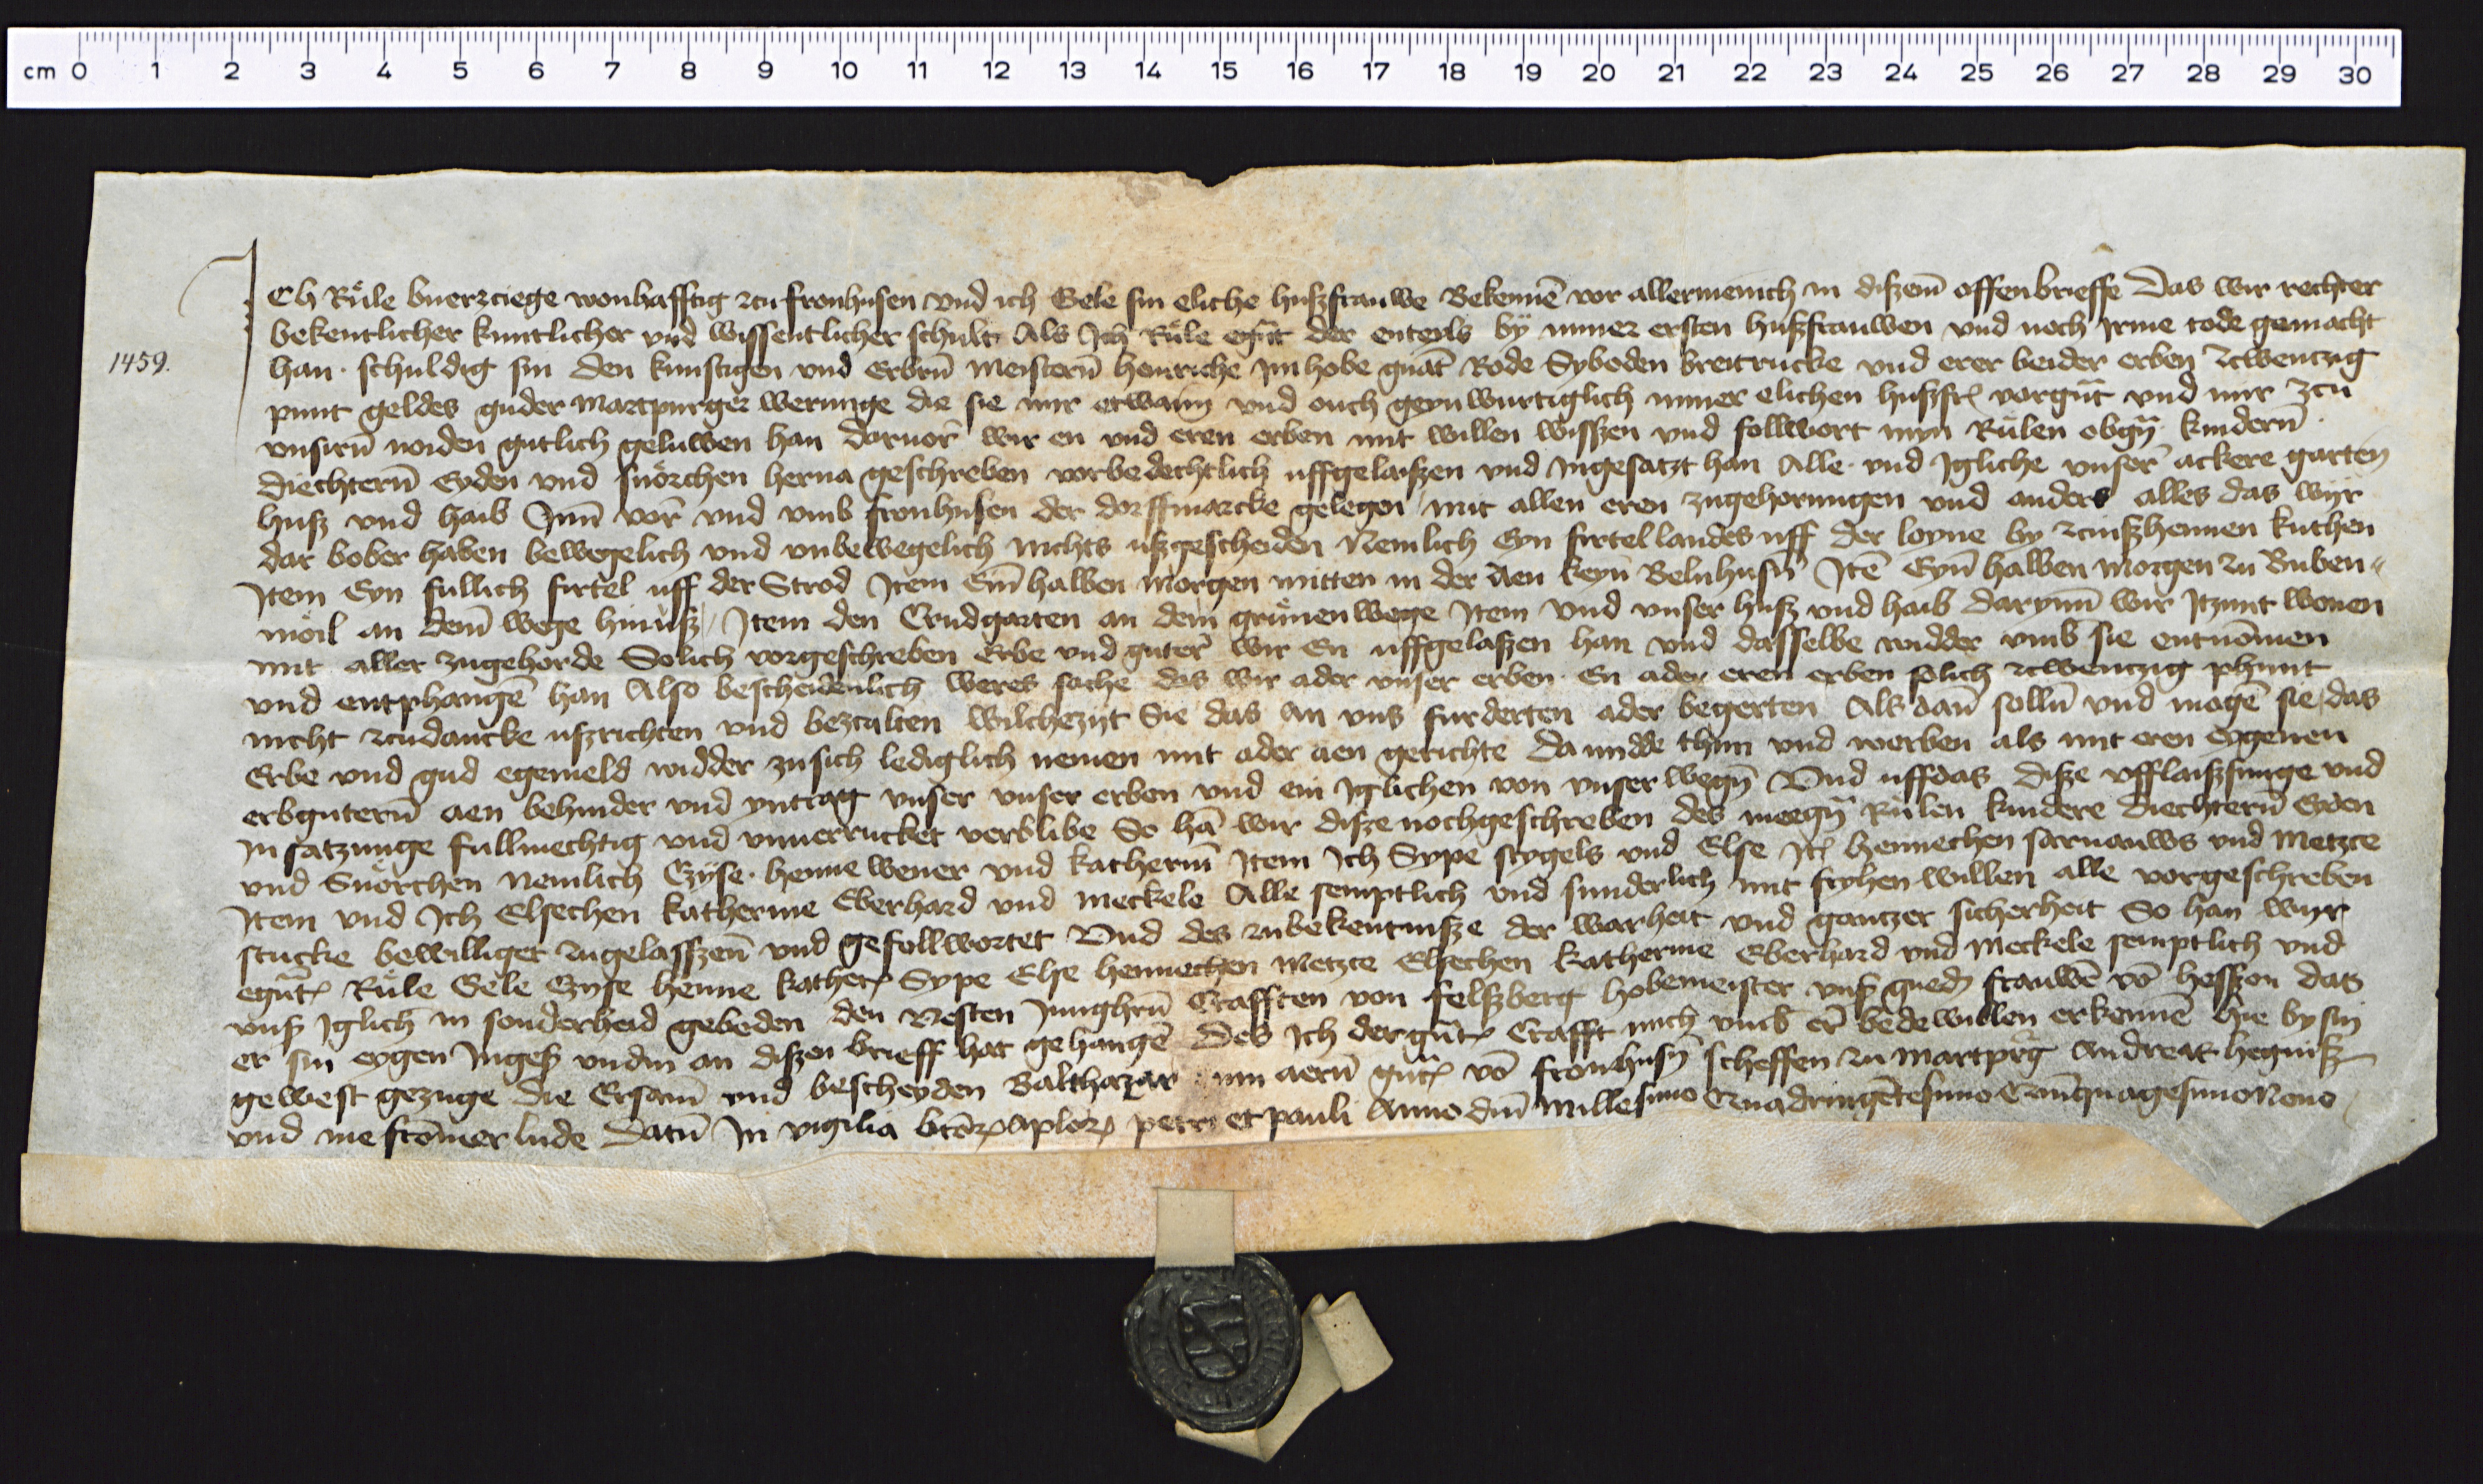 cm 0 1 2 3 4 5 6 7 8 9 10 11 12 13 14 15 16 17 18 19 20 21 22 23 24 25 26 27 28 29 30
ICh Rule wonhafftig zcu fronhusen vnd ich Gele sin eliche huszfrauwe Bekennē vor allermenich in diszem̄ offenbrieffe Das wir rechter
bekentlicher kuntlicher vnd wissentlicher schult Als Ich Rule egn̄t der enteyls by miner ersten huszfrauwen vnd noch irme tode gemacht
1459.
han schuldig sin den kunstigen vnd Erbrn̄ Meistern̄ Henriche Im hobe gnāt Rode Syboden breitrucke vnd erer beider erben zcwentzig
punt geldes guder Martpurger werunge die sie mir etwann vnd ouch geynwurtiglich miner elichen huszfr vorgn̄t vnd mir zcu
vnsirn̄ noiden gutlich geluwen han Daruor wir en vnd eren erben mit willen wiszen vnd follwort myn Rulen obgn̄ kindern̄
diechtern̄ Eyden vnd snorchen herna geschreben vorbedechtlich uffgelaiszen vnd Ingesatzt han Alle vnd Igliche vnser ackere garten
husz vnd haib Inn̄ vor vnd vmb fronhusen der dorffmarcke gelegen mit allen eren zugehorungen vnd anders alles das wyr
dar bober haben bewegelich vnd vnbewegelich nichts uszgescheiden Nemlich Eyn firtel landes uff der loyne by kuchen
Item Eyn fullich firtel uff der Strod Item Ein̄ halben Morgen mitten in der Aen keyn Belnhusn̄ Itē Eyn̄ halben Morgen zu Buben-
moil an dem̄ wege hinusz Item den Crudgarten an dem grunen wege Item vnd vnser husz vnd haib darynn̄ wir Itzunt wonen
mit aller zugehorde Solich vorgeschreben Erbe vnd guter wir En uffgelaszen han vnd dasselbe widder vmb sie entnōmen
vnd entphangē han Also bescheidenlich weres sache das wir ader vnser erben En ader eren erben solich zcwentzig phunt
nicht zcudancke uszrichten vnd bezcalten wilchezyt Sie das an vns furderten ader begerten Als dan̄ solln̄ vnd mogē sie das
Erbe vnd gud egemeld widder zusich lediglich nemen mit ader aen gerichte Da midde thun vnd werben als mit eren eygenen
erbgutern̄ aen behinder vnd yntrag vnser vnser erben vnd ein Iglichen von vnser wegn̄ Vnd uffdas disze vfflaiszunge vnd
Insatzunge fullmechtig vnd vnuerrucket verblibe So hā wir disze nochgeschreben des meegn̄ Rulen kindere diechtern̄ Eyden
vnd Snorchen Nemlich Gyse Henne wener vnd katherin̄ Item Ich Sype stygels vnd Else Itē Hennechen sarnauws vnd Metzce
Item vnd Ich Elsechen katherine Eberhard vnd Meckele Alle semptlich vnd sunderlich mit fryhen willen alle vorgeschreben
stucke bewilliget zugelaszen̄ vnd gefollwortet Vnd des zubekentnisze der warheit vnd gantzer sicherheit So han wyr
egn̄t Rule Gele Gyse Henne kather Sype Else Hennechen Metzce Elsechen katherine Eberhard vnd Meckele semptlich vnd
vnsz Iglich in sonderheid gebeden den Vesten Junghrn̄ Crafften von felszberg hobemeister vnsz gned frauwē vō hessen das
er sin eygen Ingesz vndin an diszen brieff hat gehangē Des Ich dergn̄t Crafft mich vmb er bede willen erkennē Hie by sin
gewest gezuge die Ersam̄ vnd bescheyden Balthazar gn̄t vō fronhusn̄ scheffen zu Martprg Andreas
vnd me frōmer lude Datū In vigilia btōr aplor petri et pauli Anno dm̄ Millesimo Quadringētesimo Quīquagesimo Nono